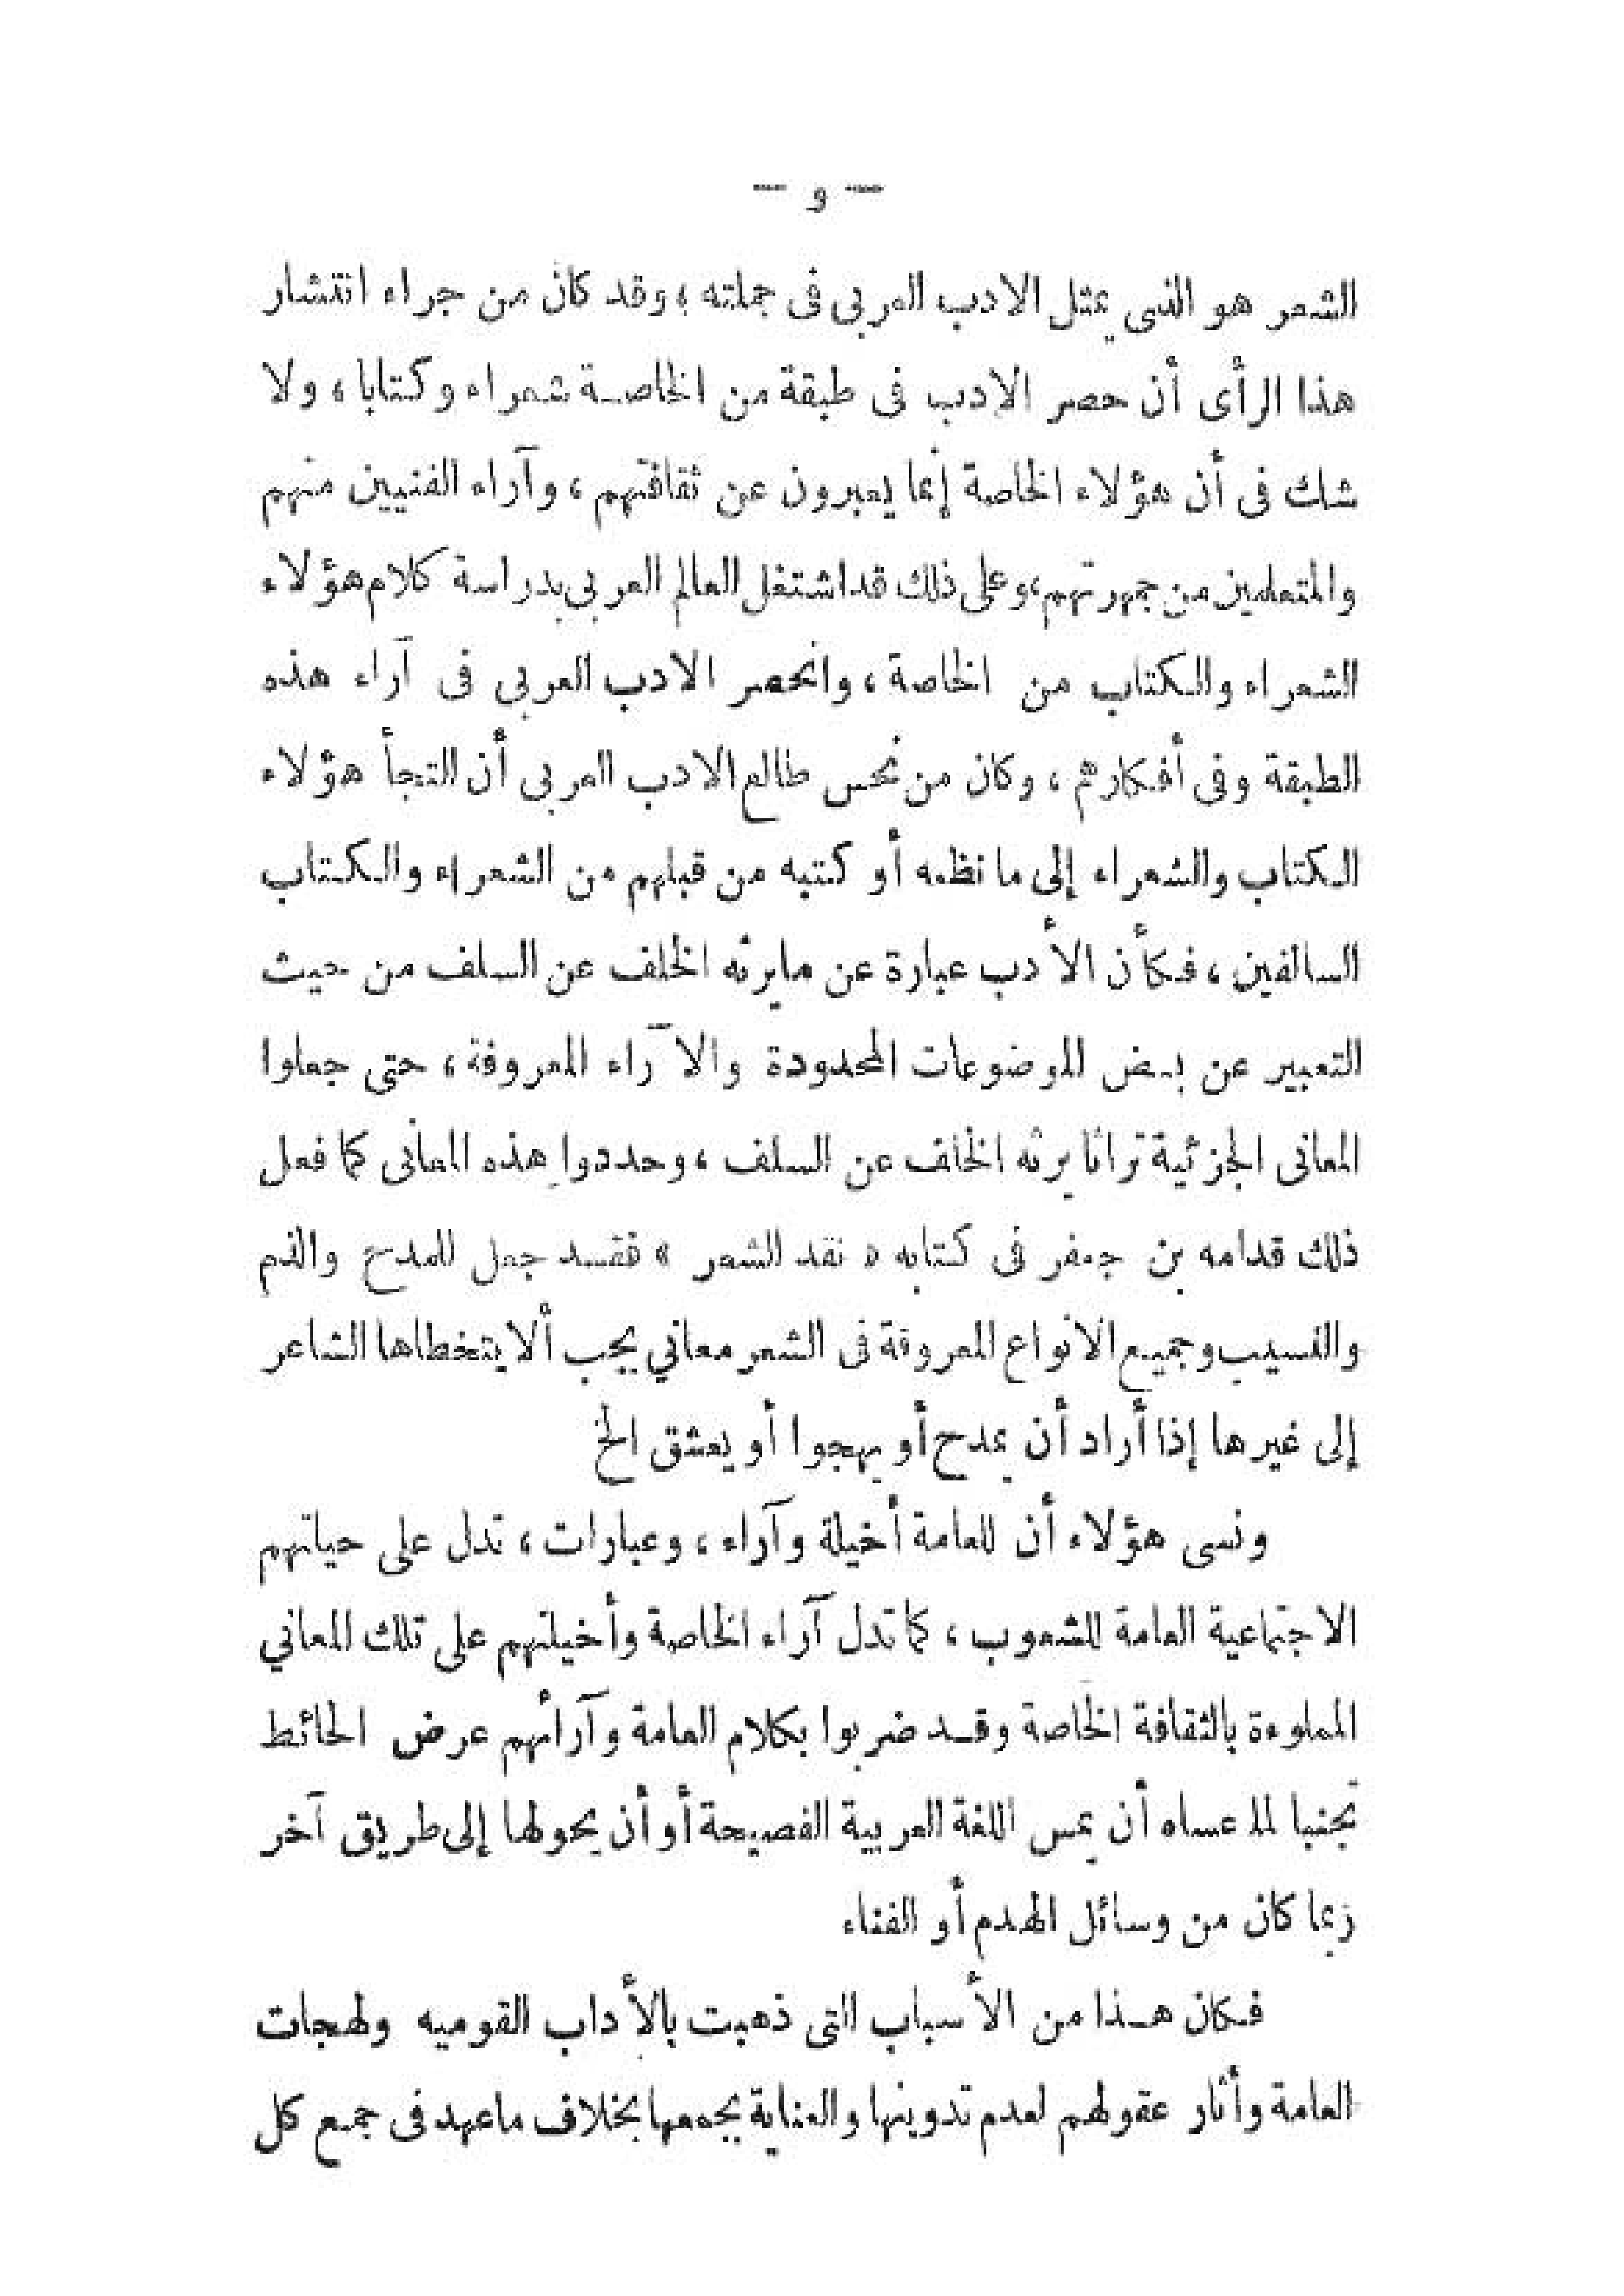 — و —
الشعر هو الذى يمثل الادب العربى فى جملته ؛ وقد كان من جراء انتشار
هذا الرأى أن حصر الادب فى طبقة من الخاصة شعراء وكتابا ، ولا
شك فى أن هؤلاء الخاصة إنما يعبرون عن ثقافتهم ، وآراء الفنيين منهم
والمتعلمين من جمهرتهم، وعلى ذلك قد اشتغل العالم العربى بدراسة كلام هؤلاء
الشعراء والكتاب من الخاصة ، وانحصر الادب العربى فى آراء هذه
الطبقة وفى أفكارهم ، وكان من نحس طالع الادب العربى أن التجأ هؤلاء
الكتاب والشعراء إلى ما نظمه أو كتبه من قبلهم من الشعراء والكتاب
السالفين ، فكأن الأدب عبارة عن مايرثه الخلف عن السلف من حيث
التعبير عن بعض الموضوعات المحدودة والآراء المعروفة ، حتى جعلوا
المعانى الجزئية تراثا يرثه الخلف عن السلف ، وحددوا هذه المعانى كما فعل
ذلك قدامه بن جعفر فى كتابه « نقد الشعر » فقد جعل للمدح والذم
والنسيب وجميع الانواع المعروفة فى الشعر معاني يجب ألا يتخطاها الشاعر
إلى غيرها إذا أراد أن يمدح أو يهجوا أو يعشق الخ
ونسى هؤلاء أن للعامة أخيلة وآراء ، وعبارات ، تدل على حياتهم
الاجتماعية العامة للشعوب ، كما تدل آراء الخاصة وأخيلتهم على تلك المعاني
المملوءة بالثقافة الخاصة وقد ضربوا بكلام العامة وآرائهم عرض الحائط
تجنبا لما عساه أن يمس اللغة العربية الفصيحة أو أن يحولها إلى طريق آخر
ربما كان من وسائل الهدم أو الفناء
فكان هذا من الأسباب التى ذهبت بالأداب القوميه ولهجات
العامة وأثار عقولهم لعدم تدوينها والعناية بجمعها بخلاف ماعهد فى جمع كل